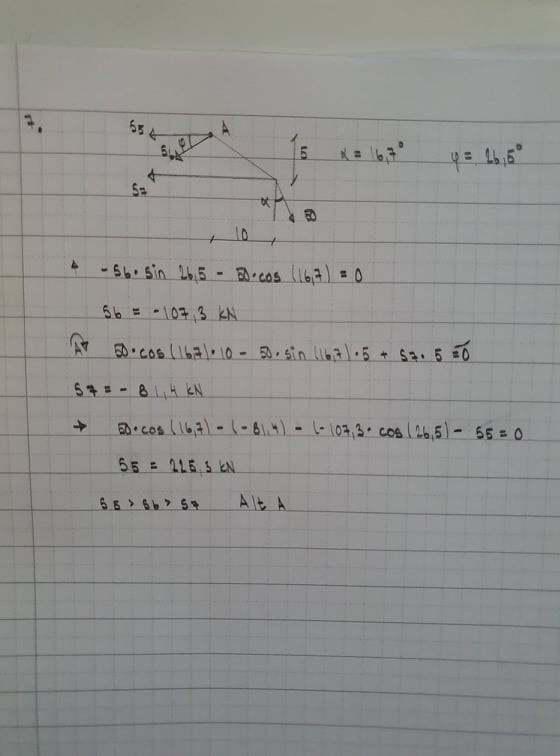 7.
S5 A
S6 φ
S7
5 α = 16,7° φ = 26,5°
α 50
10
- S6 · sin 26,5 - 50 · cos (16,7) = 0
S6 = -107,3 kN
A 50 · cos (16,7) · 10 - 50 · sin (16,7) · 5 + S7 · 5 = 0
S7 = - 81,4 kN
→ 50 · cos (16,7) - (-81,4) - (-107,3 · cos (26,5) - S5 = 0
S5 = 225,3 kN
S5 > S6 > S7 Alt A